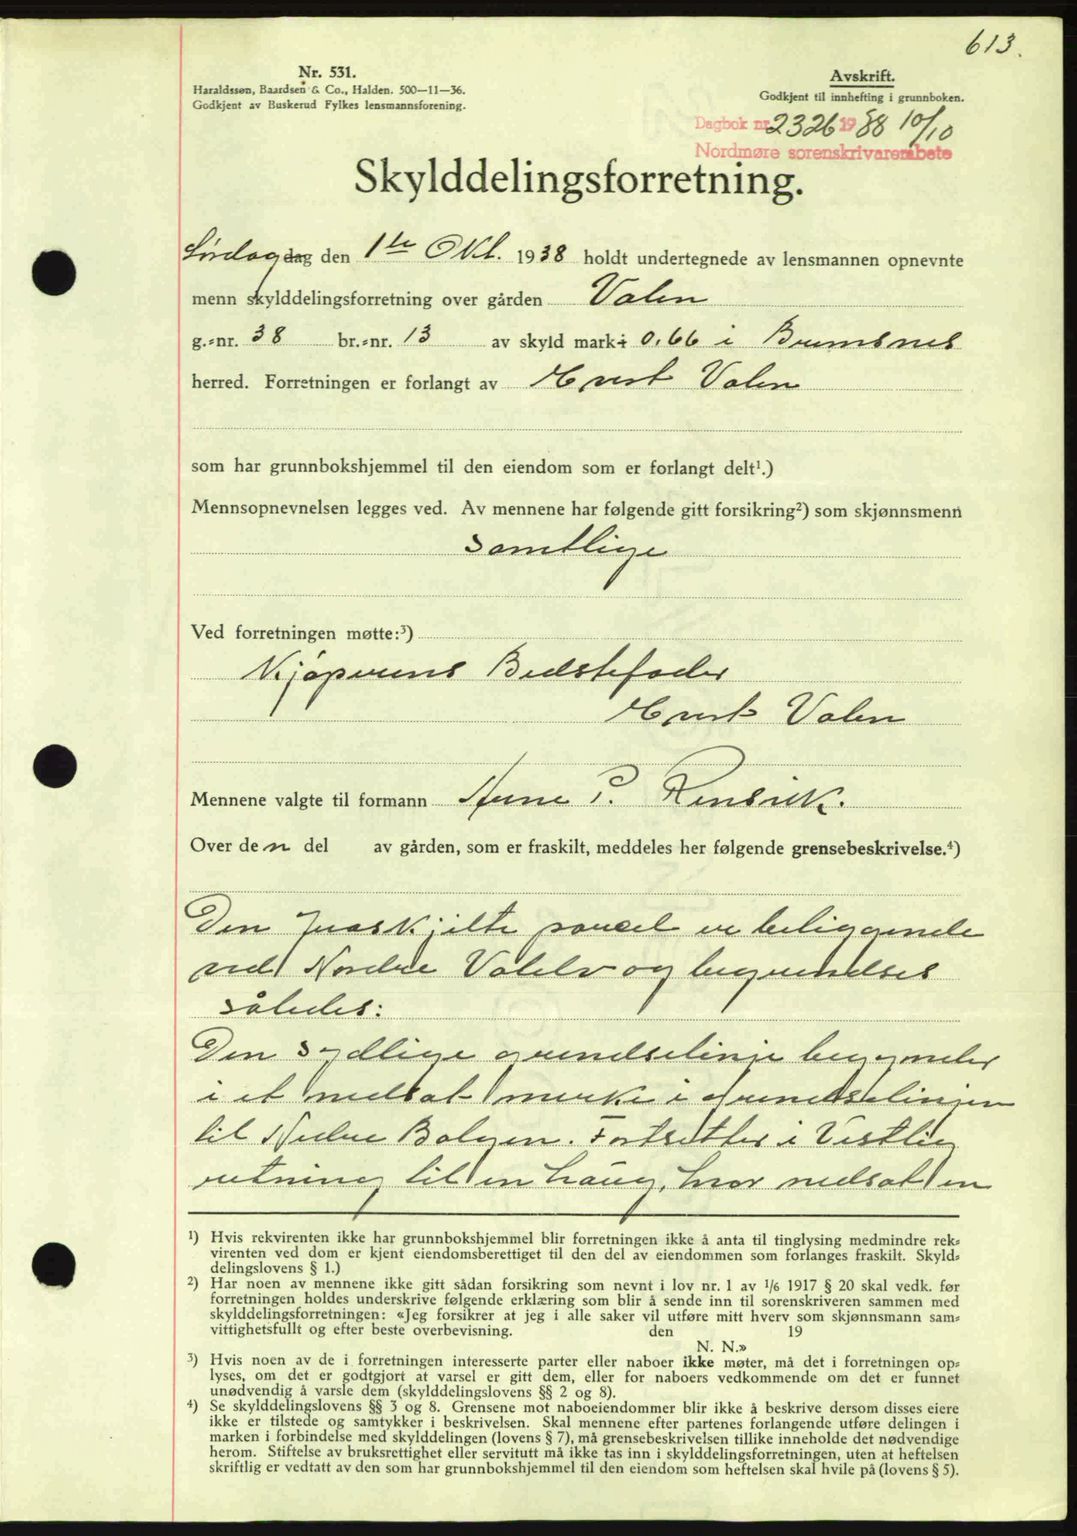 613.
Nr. 531.
Haraldssøn, Baardsen & Co., Halden. 500—11—36.
Godkjent av Buskerud Fylkes lensmannsforening.
Avskrift.
Godkjent til innhefting i grunnboken.
Dagbok nr. 2326 1938 10/10
Nordmøre sorenskrivarembete
Skylddelingsforretning.
Lørdag dag den 1ste Okt. 1938 holdt undertegnede av lensmannen opnevnte
menn skylddelingsforretning over gården Valen
g.=nr. 38 br.=nr. 13 av skyld mark 0,66 i Bremsnes
herred. Forretningen er forlangt av Evert Valen
som har grunnbokshjemmel til den eiendom som er forlangt delt¹.)
Mennsopnevnelsen legges ved. Av mennene har følgende gitt forsikring²) som skjønnsmenn
samtlige
Ved forretningen møtte:³)
Kjøperens Bedstefader
Evert Valen
Mennene valgte til formann Arne P. Rensvik.
Over den del av gården, som er fraskilt, meddeles her følgende grensebeskrivelse.⁴)
Den fraskjilte parcel er beliggende
ved Nordre Valelv og begrendses
således:
Den sydlige grendselinje begynder
i et nedsat merke i grendselinjen
til Nedre Bolgen. Fortsetter i Vestlig
retning til en haug, hvor nedsat en
¹) Hvis rekvirenten ikke har grunnbokshjemmel blir forretningen ikke å anta til tinglysing medmindre rek=
virenten ved dom er kjent eiendomsberettiget til den del av eiendommen som forlanges fraskilt. Skyld=
delingslovens § 1.)
²) Har noen av mennene ikke gitt sådan forsikring som nevnt i lov nr. 1 av 1/6 1917 § 20 skal vedk. før
forretningen holdes underskrive følgende erklæring som blir å sende inn til sorenskriveren sammen med
skylddelingsforretningen: «Jeg forsikrer at jeg i alle saker vil utføre mitt hverv som skjønnsmann sam=
vittighetsfullt og efter beste overbevisning. den 19
N. N.»
³) Hvis noen av de i forretningen interesserte parter eller naboer ikke møter, må det i forretningen op=
lyses, om det er godtgjort at varsel er gitt dem, eller for naboers vedkommende om det er funnet
unødvendig å varsle dem (skylddelingslovens §§ 2 og 8).
⁴) Se skylddelingslovens §§ 3 og 8. Grensene mot naboeiendommer blir ikke å beskrive dersom disses eiere
ikke er tilstede og samtykker i beskrivelsen. Skal mennene efter partenes forlangende utføre delingen i
marken i forbindelse med skylddelingen (lovens § 7), må grensebeskrivelsen tillike inneholde det nødvendige
herom. Stiftelse av bruksrettighet eller servitutt må ikke tas inn i skylddelingsforretningen, uten at heftelsen
skriftlig er vedtatt av den som har grunnbokshjemmel til den eiendom som heftelsen skal hvile på (lovens § 5).